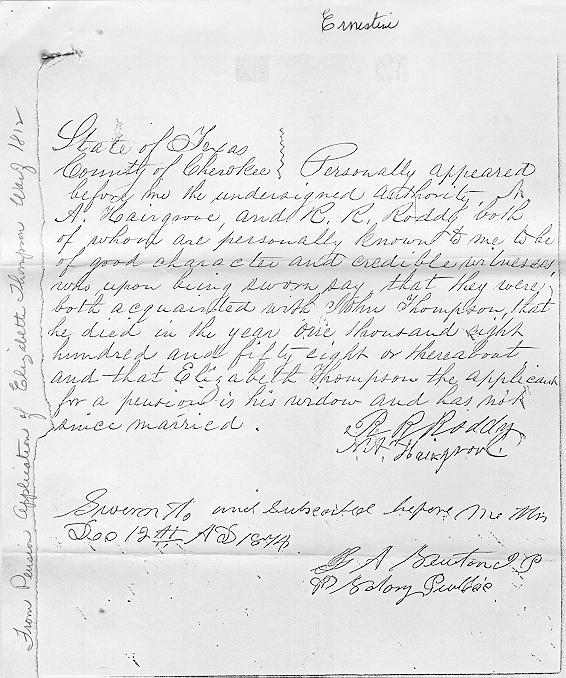 Ernestine
From Pension Application of Elizabeth Thompson War of 1812
State of Texas
County of Cherokee } Personally appeared
before me the undersigned authority, N
A. Hairgrove, and R. R. Roddy both
of whom are personally known to me to be
of good character and credible witnesses,
who upon being sworn say, that they were
both acquainted with John Thompson, that
he died in the year one thousand eight
hundred and fifty eight or thereabout
and that Elizabeth Thompson the applicant
for a pension is his widow and has not
since married.
R R Roddy
N. A. Hairgrove
Sworn to and subscribed before me this
Dec 12th AD 1874
A Benton J P
Notary Public